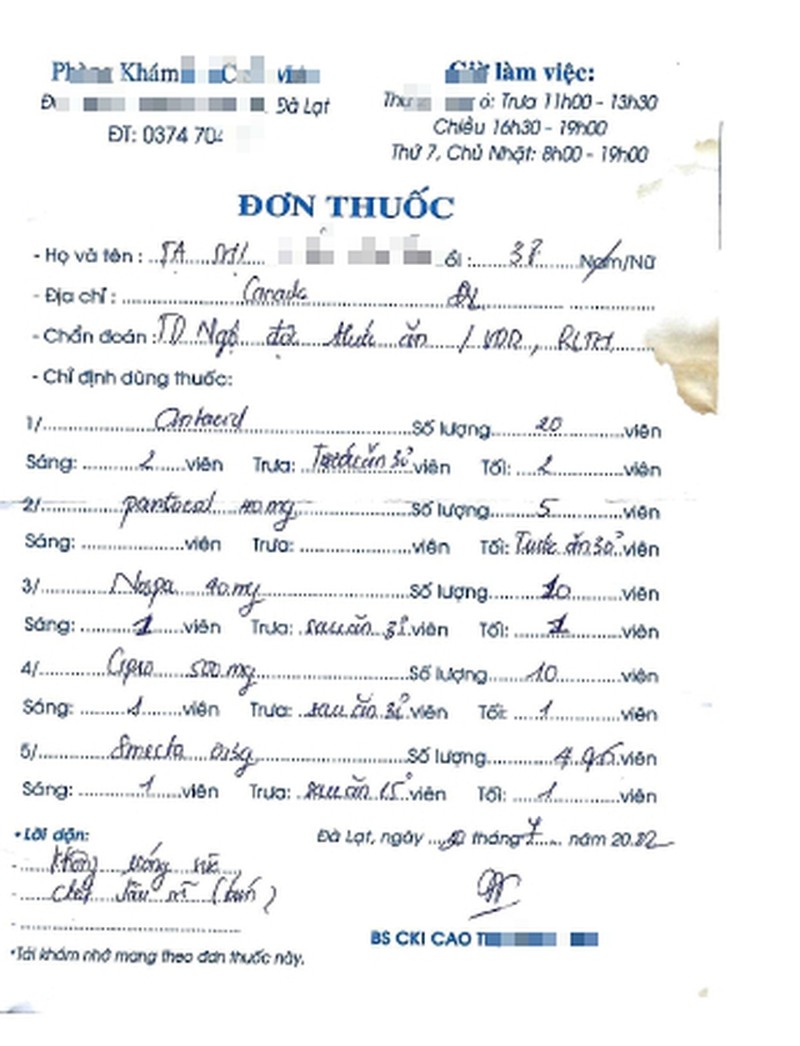 Phòng Khám
Giờ làm việc:
Đà Lạt
Trưa 11h00 - 13h30
ĐT: 0374 704
Chiều 16h30 - 19h00
Thứ 7, Chủ Nhật: 8h00 - 19h00
ĐƠN THUỐC
- Họ và tên : TẠ ổi : 38 Nam/Nữ
- Địa chỉ : Canada ĐL
- Chẩn đoán : TD Ngộ độc thức ăn / VDD, RLTH
- Chỉ định dùng thuốc:
1/ Antacid Số lượng 20 viên
Sáng: 2 viên Trưa: Trước ăn 30' viên Tối: 2 viên
2/ pantocal 40 mg Số lượng 5 viên
Sáng: viên Trưa: viên Tối: Trước ăn 30' viên
3/ Nospa 40 mg Số lượng 10 viên
Sáng: 1 viên Trưa: sau ăn 30' viên Tối: 1 viên
4/ Cipro 500 mg Số lượng 10 viên
Sáng: 1 viên Trưa: sau ăn 30' viên Tối: 1 viên
5/ Smecta Số lượng viên
Sáng: 1 viên Trưa: sau ăn 15' viên Tối: 1 viên
• Lời dặn:
Đà Lạt, ngày tháng 7 năm 2022
- Không uống sữa
- chất
BS CKI CAO
*Tái khám nhớ mang theo đơn thuốc này.